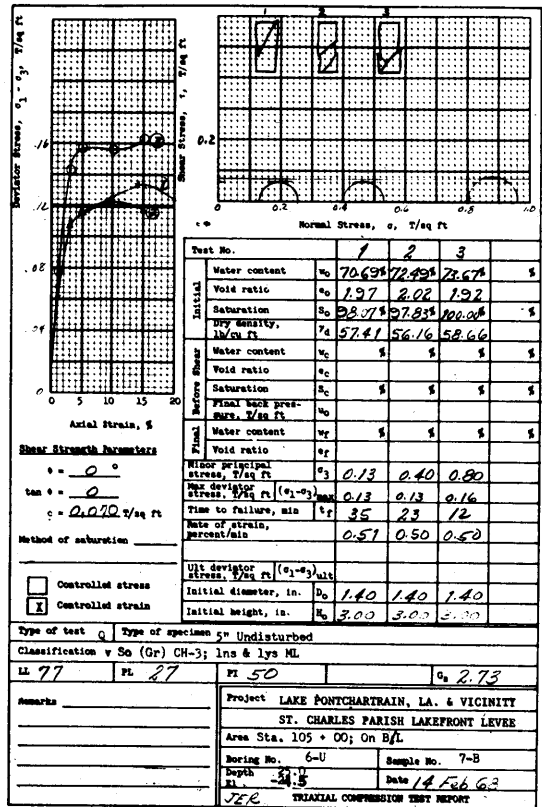 1 2 3
Deviator Stress, σ1 - σ3, T/sq ft
Shear Stress, τ, T/sq ft
.16
.12
.08
.04
0
0 5 10 15 20
Axial Strain, %
0.2
0 0.2 0.4 0.6 0.8 1.0
Normal Stress, σ, T/sq ft
Shear Strength Parameters
φ = 0 °
tan φ = 0
c = 0.070 T/sq ft
Method of saturation
Controlled stress
X Controlled strain
Test No. 1 2 3
Initial
Water content w0 70.69% 72.49% 73.67% %
Void ratio e0 1.97 2.02 1.92
Saturation S0 98.07% 97.83% 100.00% %
Dry density, lb/cu ft γd 57.41 56.16 58.66
Before Shear
Water content wc % % % %
Void ratio ec
Saturation Sc % % % %
Final back pressure, T/sq ft u0
Final
Water content wf % % % %
Void ratio ef
Minor principal stress, T/sq ft σ3 0.13 0.40 0.80
Max deviator stress, T/sq ft (σ1-σ3)max 0.13 0.13 0.16
Time to failure, min tf 35 23 12
Rate of strain, percent/min 0.51 0.50 0.50
Ult deviator stress, T/sq ft (σ1-σ3)ult
Initial diameter, in. D0 1.40 1.40 1.40
Initial height, in. H0 3.00 3.00 3.00
Type of test Q Type of specimen 5" Undisturbed
Classification v So (Gr) CH-3; lns & lys ML
LL 77 PL 27 PI 50 Gs 2.73
Remarks
Project LAKE PONTCHARTRAIN, LA. & VICINITY
ST. CHARLES PARISH LAKEFRONT LEVEE
Area Sta. 105 + 00; On B/L
Boring No. 6-U Sample No. 7-B
Depth El Date 14 Feb 63
JER TRIAXIAL COMPRESSION TEST REPORT